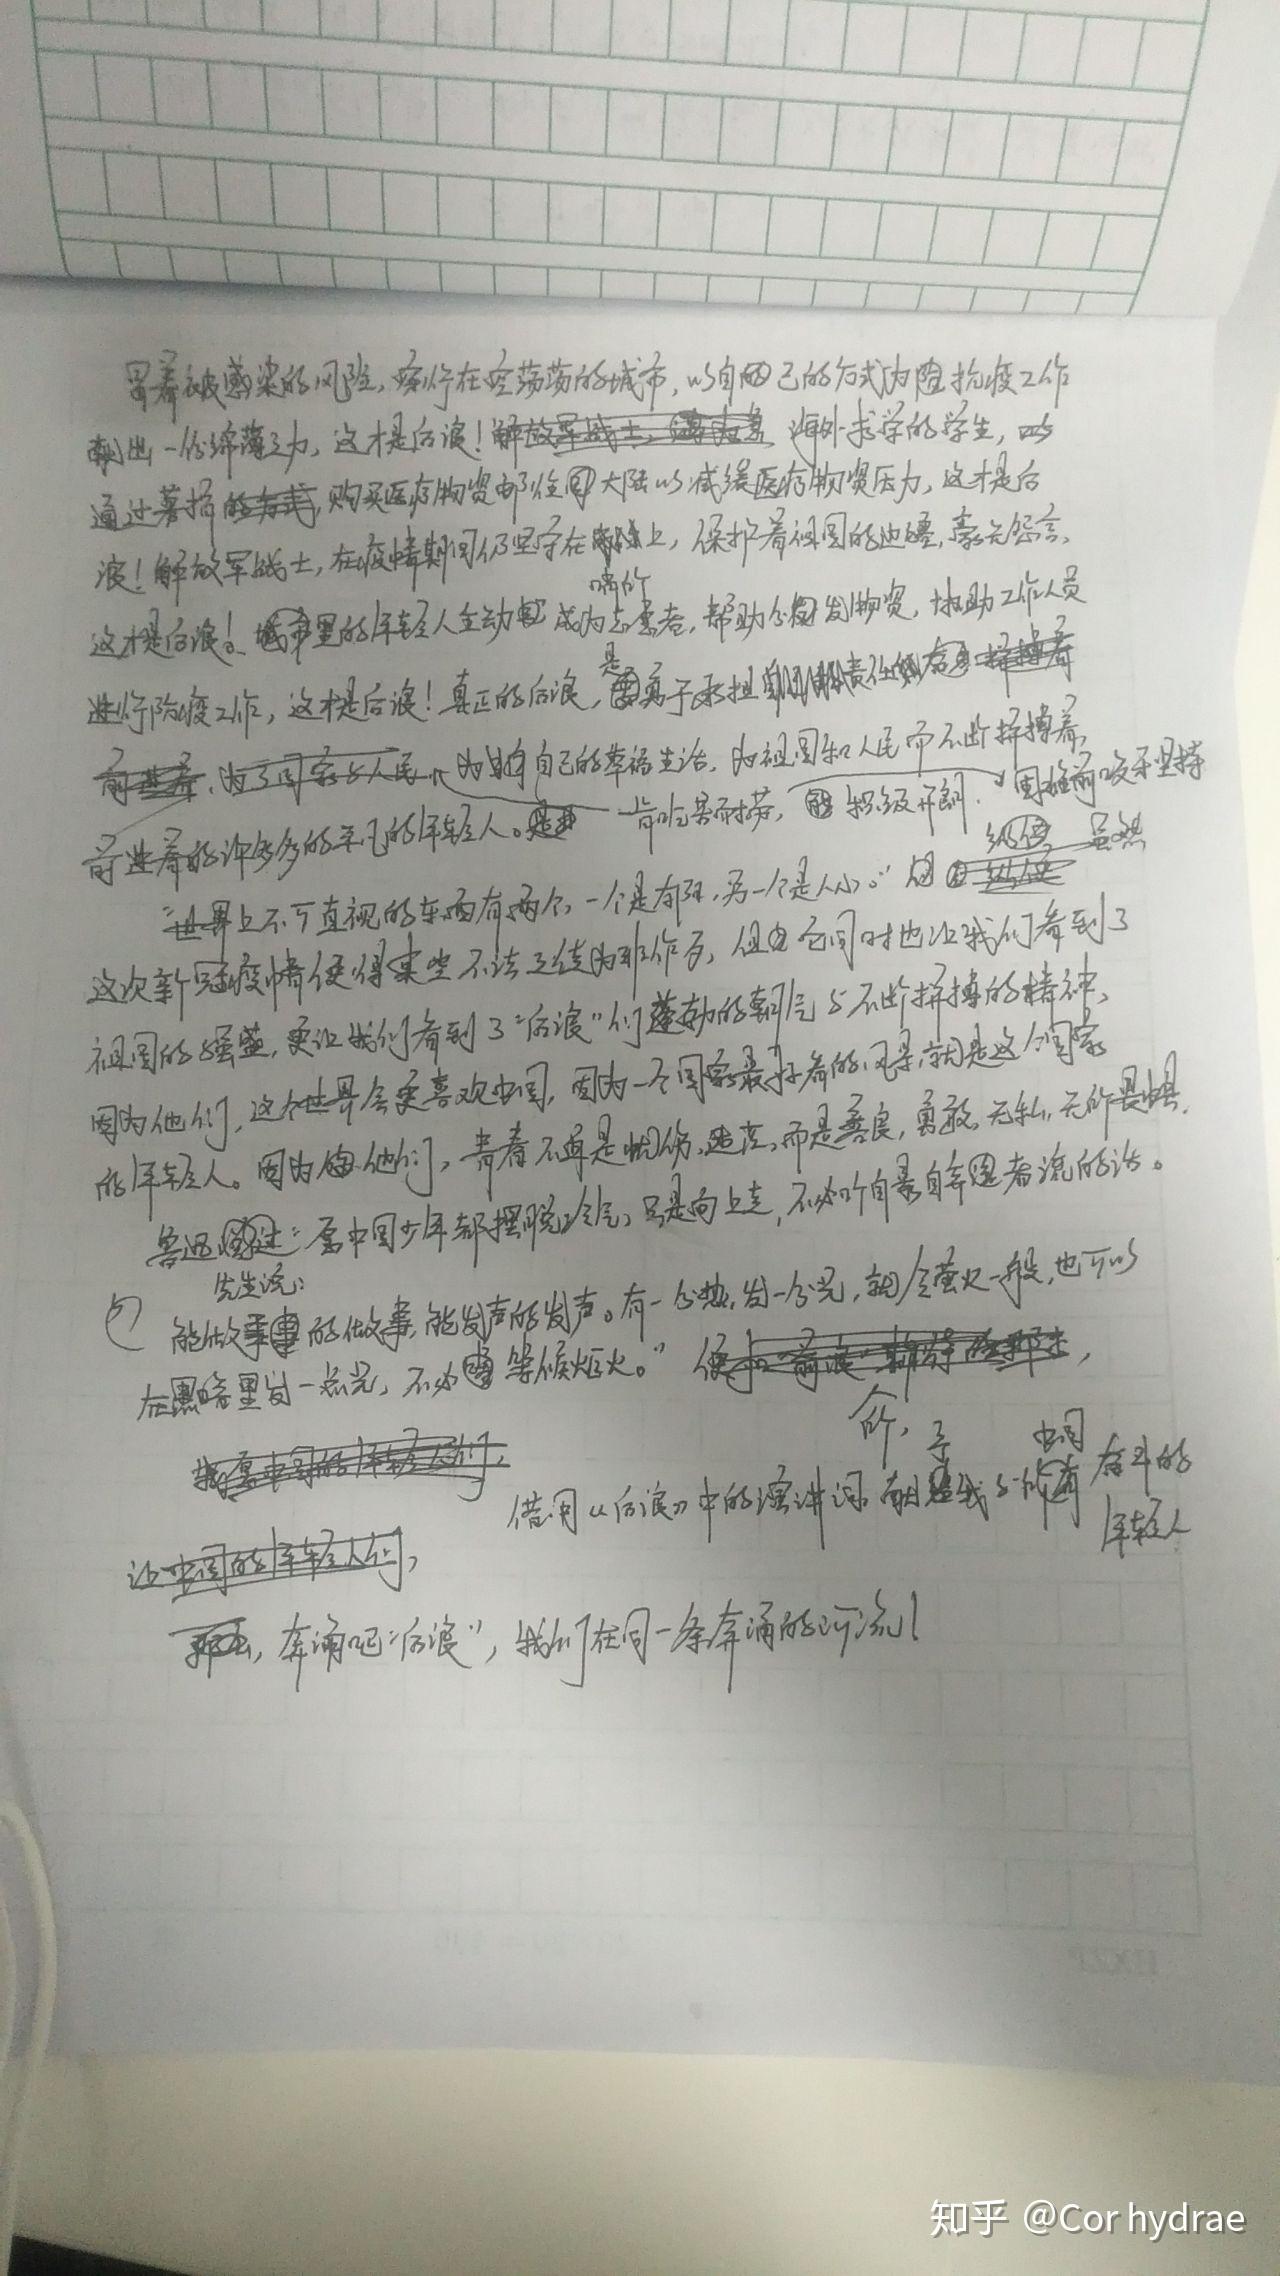 冒着被感染的风险，穿行在空荡荡的城市，以自己的方式为抗疫工作
献出一份绵薄之力，这才是后浪！解放军战士，海外求学的学生，
通过募捐的方式，购买医疗物资邮往大陆以减缓医疗物资压力，这才是后
浪！解放军战士，在疫情期间仍坚守在 上，保护着祖国的边疆，毫无怨言，
这才是后浪！城市里的年轻人主动 成为志愿者，帮助分发物资，协助工作人员
进行防疫工作，这才是后浪！真正的后浪，是勇于承担 责任
前进着，为了国家与人民，为 自己的幸福生活，为祖国和人民而不断拼搏着，
肯吃苦 ，积极开朗，困难前咬牙坚持
前进着的许许多多的平凡的年轻人。
“世界上不可直视的东西有两个，一个是太阳，另一个是人心。” 虽然
这次新冠疫情使得某些不法之徒为非作歹，但它同时也让我们看到了
祖国的强盛，更让我们看到了“后浪”们蓬勃的朝气与不断拼搏的精神，
因为他们，这个世界会更喜欢中国，因为一个国家最好看的风景，就是这个国家
的年轻人。因为他们，青春不再是忧伤、迷茫，而是善良，勇敢，无私，无所畏惧，
鲁迅 ：愿中国少年都摆脱冷气，只是向上走，不必听自暴自弃者流的话。
先生说：
能做事的做事，能发声的发声。有一分热，发一分光，就令萤火一般，也可以
在黑暗里发一点光，不必等候炬火。”
我愿中国的年轻人们，
借用《后浪》中的演讲词，献 我与所有 奋斗的
中国
年轻人
让中国的年轻人们，
那么，奔涌吧“后浪”，我们在同一条奔涌的河流！
知乎 @Cor hydrae